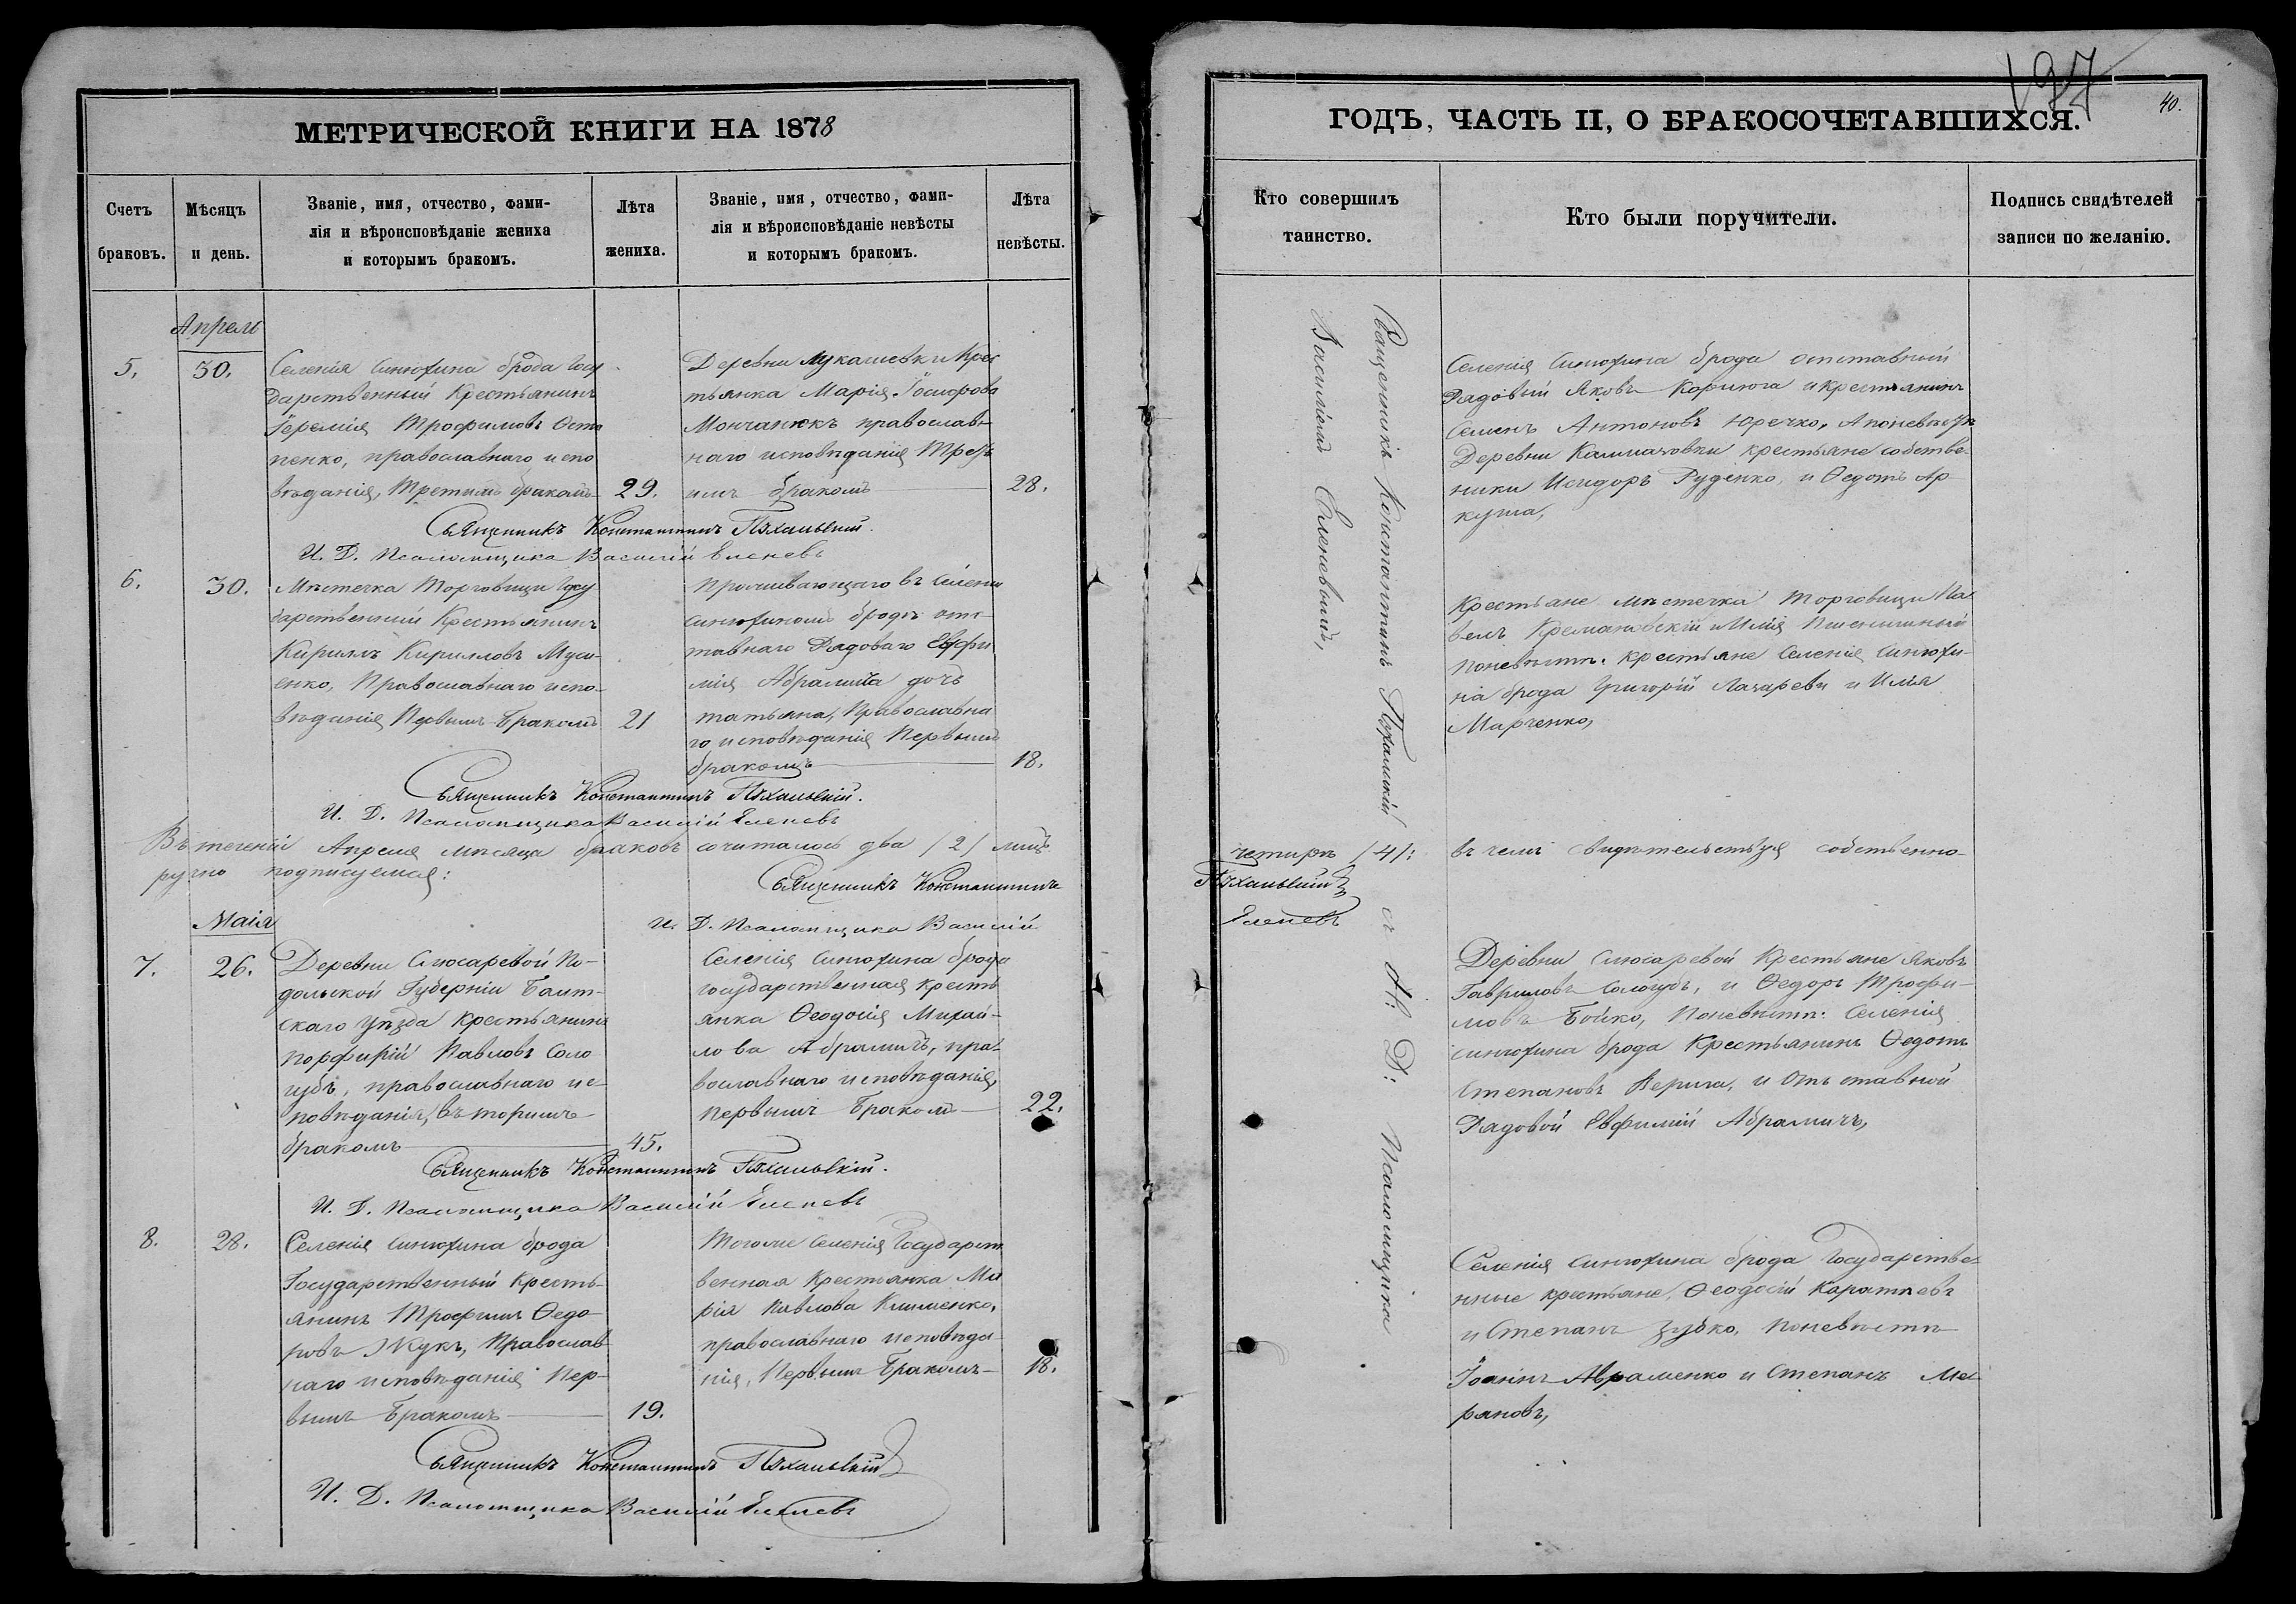 МЕТРИЧЕСКОЙ КНИГИ НА 1878
Счетъ браковъ.
Мѣсяцъ и день.
Званіе, имя, отчество, фами-
лія и вѣроисповѣданіе жениха
и которымъ бракомъ.
Лѣта жениха.
Званіе, имя, отчество, фами-
лія и вѣроисповѣданіе невѣсты
и которымъ бракомъ.
Лѣта невѣсты.
Апрель
5.
30.
Селенія Синюхина брода Госу
дарственный Крестьянинъ
Іеремія Трофимовъ Оста
пенко, православнаго испо
вѣданія, Третимъ бракомъ
29.
Деревни Лукашевки Крес
тьянка Марія Іосифова
Мончанюкъ православ
наго исповѣданія Треть
имъ бракомъ
28.
Священникъ Константинъ Пѣхальскій.
И. Д. Псаломщика Василій Еленевъ
6.
30.
Мѣстечка Торговици Госу
дарственный Крестьянинъ
Кирилъ Кириловъ Муси-
енко, Православнаго испо-
вѣданія Первымъ Бракомъ
21
Проживающаго въ Селеніи
Синюхиномъ бродѣ отс
тавнаго Рядоваго Евфи
мія Абрамича дочь
Татьяна, Православна
го исповѣданія Первымъ
бракомъ
18.
Священникъ Константинъ Пѣхальскій.
И. Д. Псаломщика Василій Еленевъ
Въ теченіи Апреля мѣсяца браковъ сочиталось два /2/ лицъ
ручно подписуемся:
Священникъ Константинъ
И. Д. Псаломщика Василій
Маія
7.
26.
Деревни Слюсаревой По-
дольской Губерніи Балт-
скаго Уѣзда Крестьянинъ
Порфирій Павловъ Соло
губъ, православнаго ис-
повѣданія, вторимъ
бракомъ
45.
Селенія Синюхина брода
государственная кресть
янка Феодосія Михай-
лова Абрамичъ, пра-
вославнаго исповѣданія,
первымъ Бракомъ
22.
Священникъ Константинъ Пѣхальскій.
И. Д. Псаломщика Василій Еленевъ
8.
28.
Селенія Синюхина брода
Государственный Кресть-
янинъ Трофимъ Ѳедо-
ровъ Жукъ, Православ
наго исповѣданія Пер-
вымъ Бракомъ
19.
Тогоже Селенія Государст
венная Крестьянка Ма
рія Павлова Клименко,
православнаго исповѣда
нія, Первымъ Бракомъ
18.
Священникъ Константинъ Пѣхальскій
И. Д. Псаломщика Василій Еленевъ
197
40.
ГОДЪ, ЧАСТЬ II, О БРАКОСОЧЕТАВШИХСЯ.
Кто совершилъ
таинство.
Кто были поручители.
Подпись свидѣтелей
записи по желанію.
Священникъ Константинъ Пѣхальскій
с И: Д: Псаломщика
Василіемъ Еленевымъ,
Селенія Синюхина брода отставный
Рядовый Яковъ Корнюга и крестьянинъ
Семенъ Антоновъ Юречко, А поневѣстѣ
Деревни Калмазовки крестьяне собстве-
ники Исидоръ Руденко, и Ѳедотъ Ар
куша,
Крестьяне мѣстечка Торговици Па
велъ Кремановскій и Илія Пшеничный
Поневѣстѣ. крестьяне Селенія Синюхи-
на брода Григорій Лазаревъ и Илія
Марченко,
четыре /4/: въ чемъ свидѣтельствуя собственно-
Пѣхальскій
Еленевъ
Деревни Слюсаревой Крестьяне Яковъ
Гавриловъ Сологубъ, и Ѳедоръ Трофи-
мовъ Бойко, Поневѣстѣ: Селенія
Синюхина брода Крестьянинъ Ѳедотъ
Степановъ Верига, и Отставной
Рядовой Евфимій Абрамичъ,
Селенія Синюхина брода Государстве-
нные крестьяне, Ѳеодосій Каратѣевъ
и Степанъ Зубко, Поневѣстѣ
Іоаннъ Авраменко и Степанъ Ме
ряновъ,